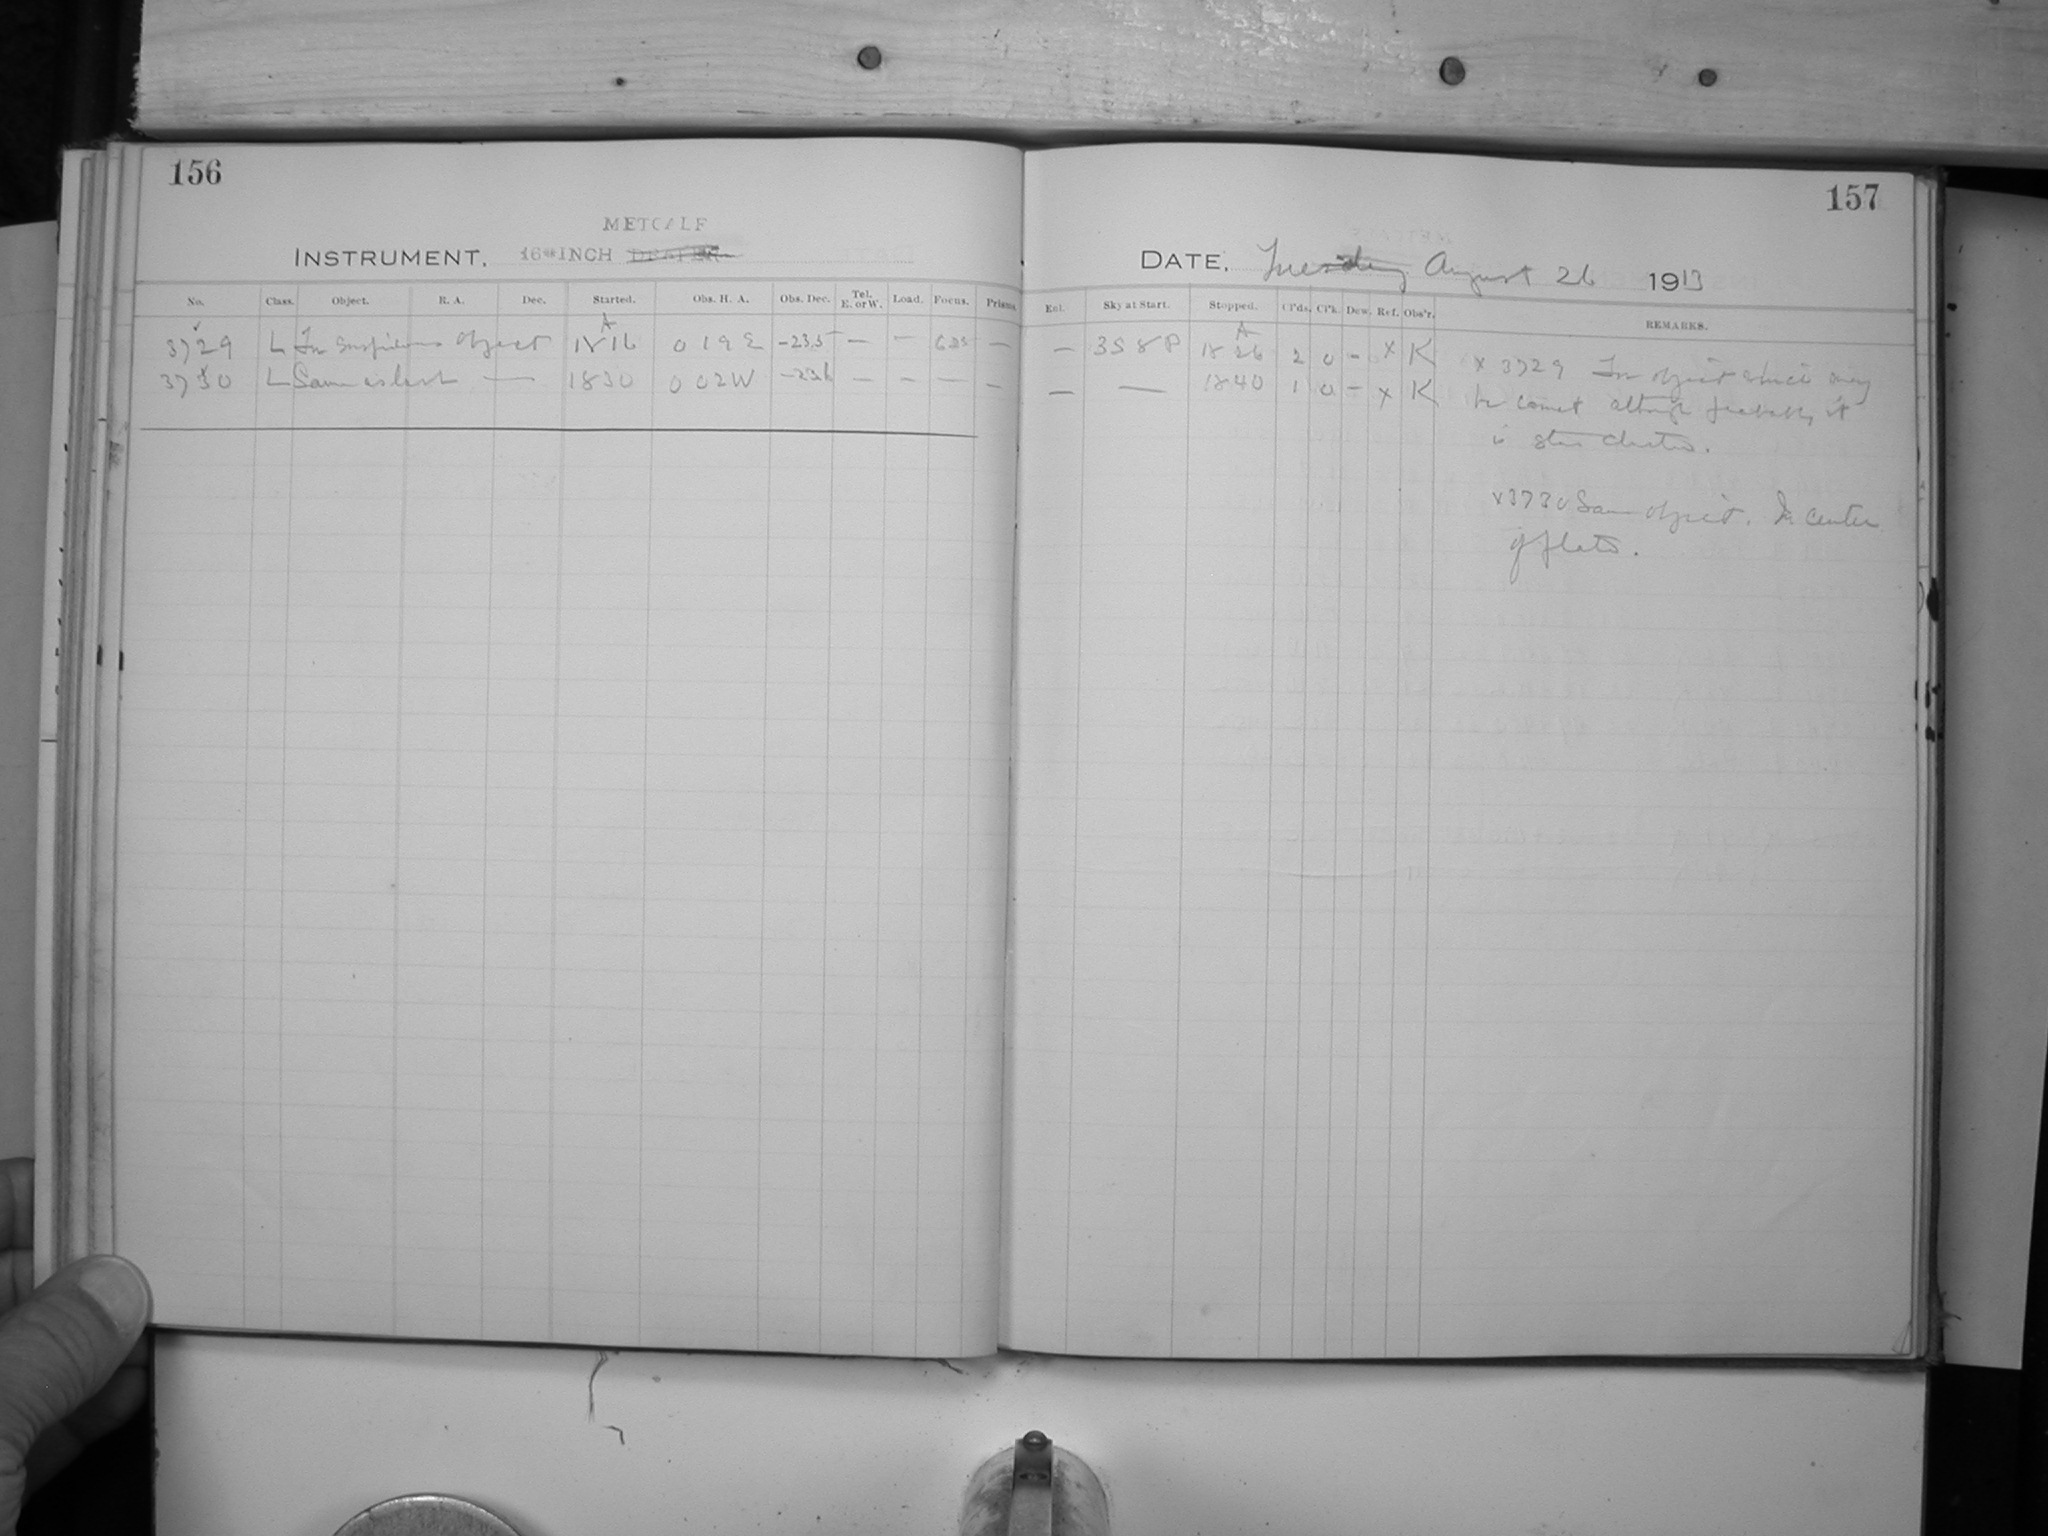 156
METCALF
INSTRUMENT. 16-INCH DRAPER
No. Class. Object. R. A. Dec. Started. Obs. H. A. Obs. Dec. Tel. E. or W. Load. Focus. Prisms
A
3729 L In suspicious object 1816 0 19 E -23.5 — — — 
3730 L Same as last — 1830 0 02 W -23.6 — — — —
157
DATE. Tuesday August 26 1913
Enl. Sky at Start. Stopped. Cl'ds. Cl'k. Dew. Ref. Obs'r. REMARKS.
A
— 358 P 1826 2 0 - x K
— — 1840 1 0 - x K
x 3729 In object which may
be comet although probably it
is star cluster.
x3730 Same object. In center
of plate.